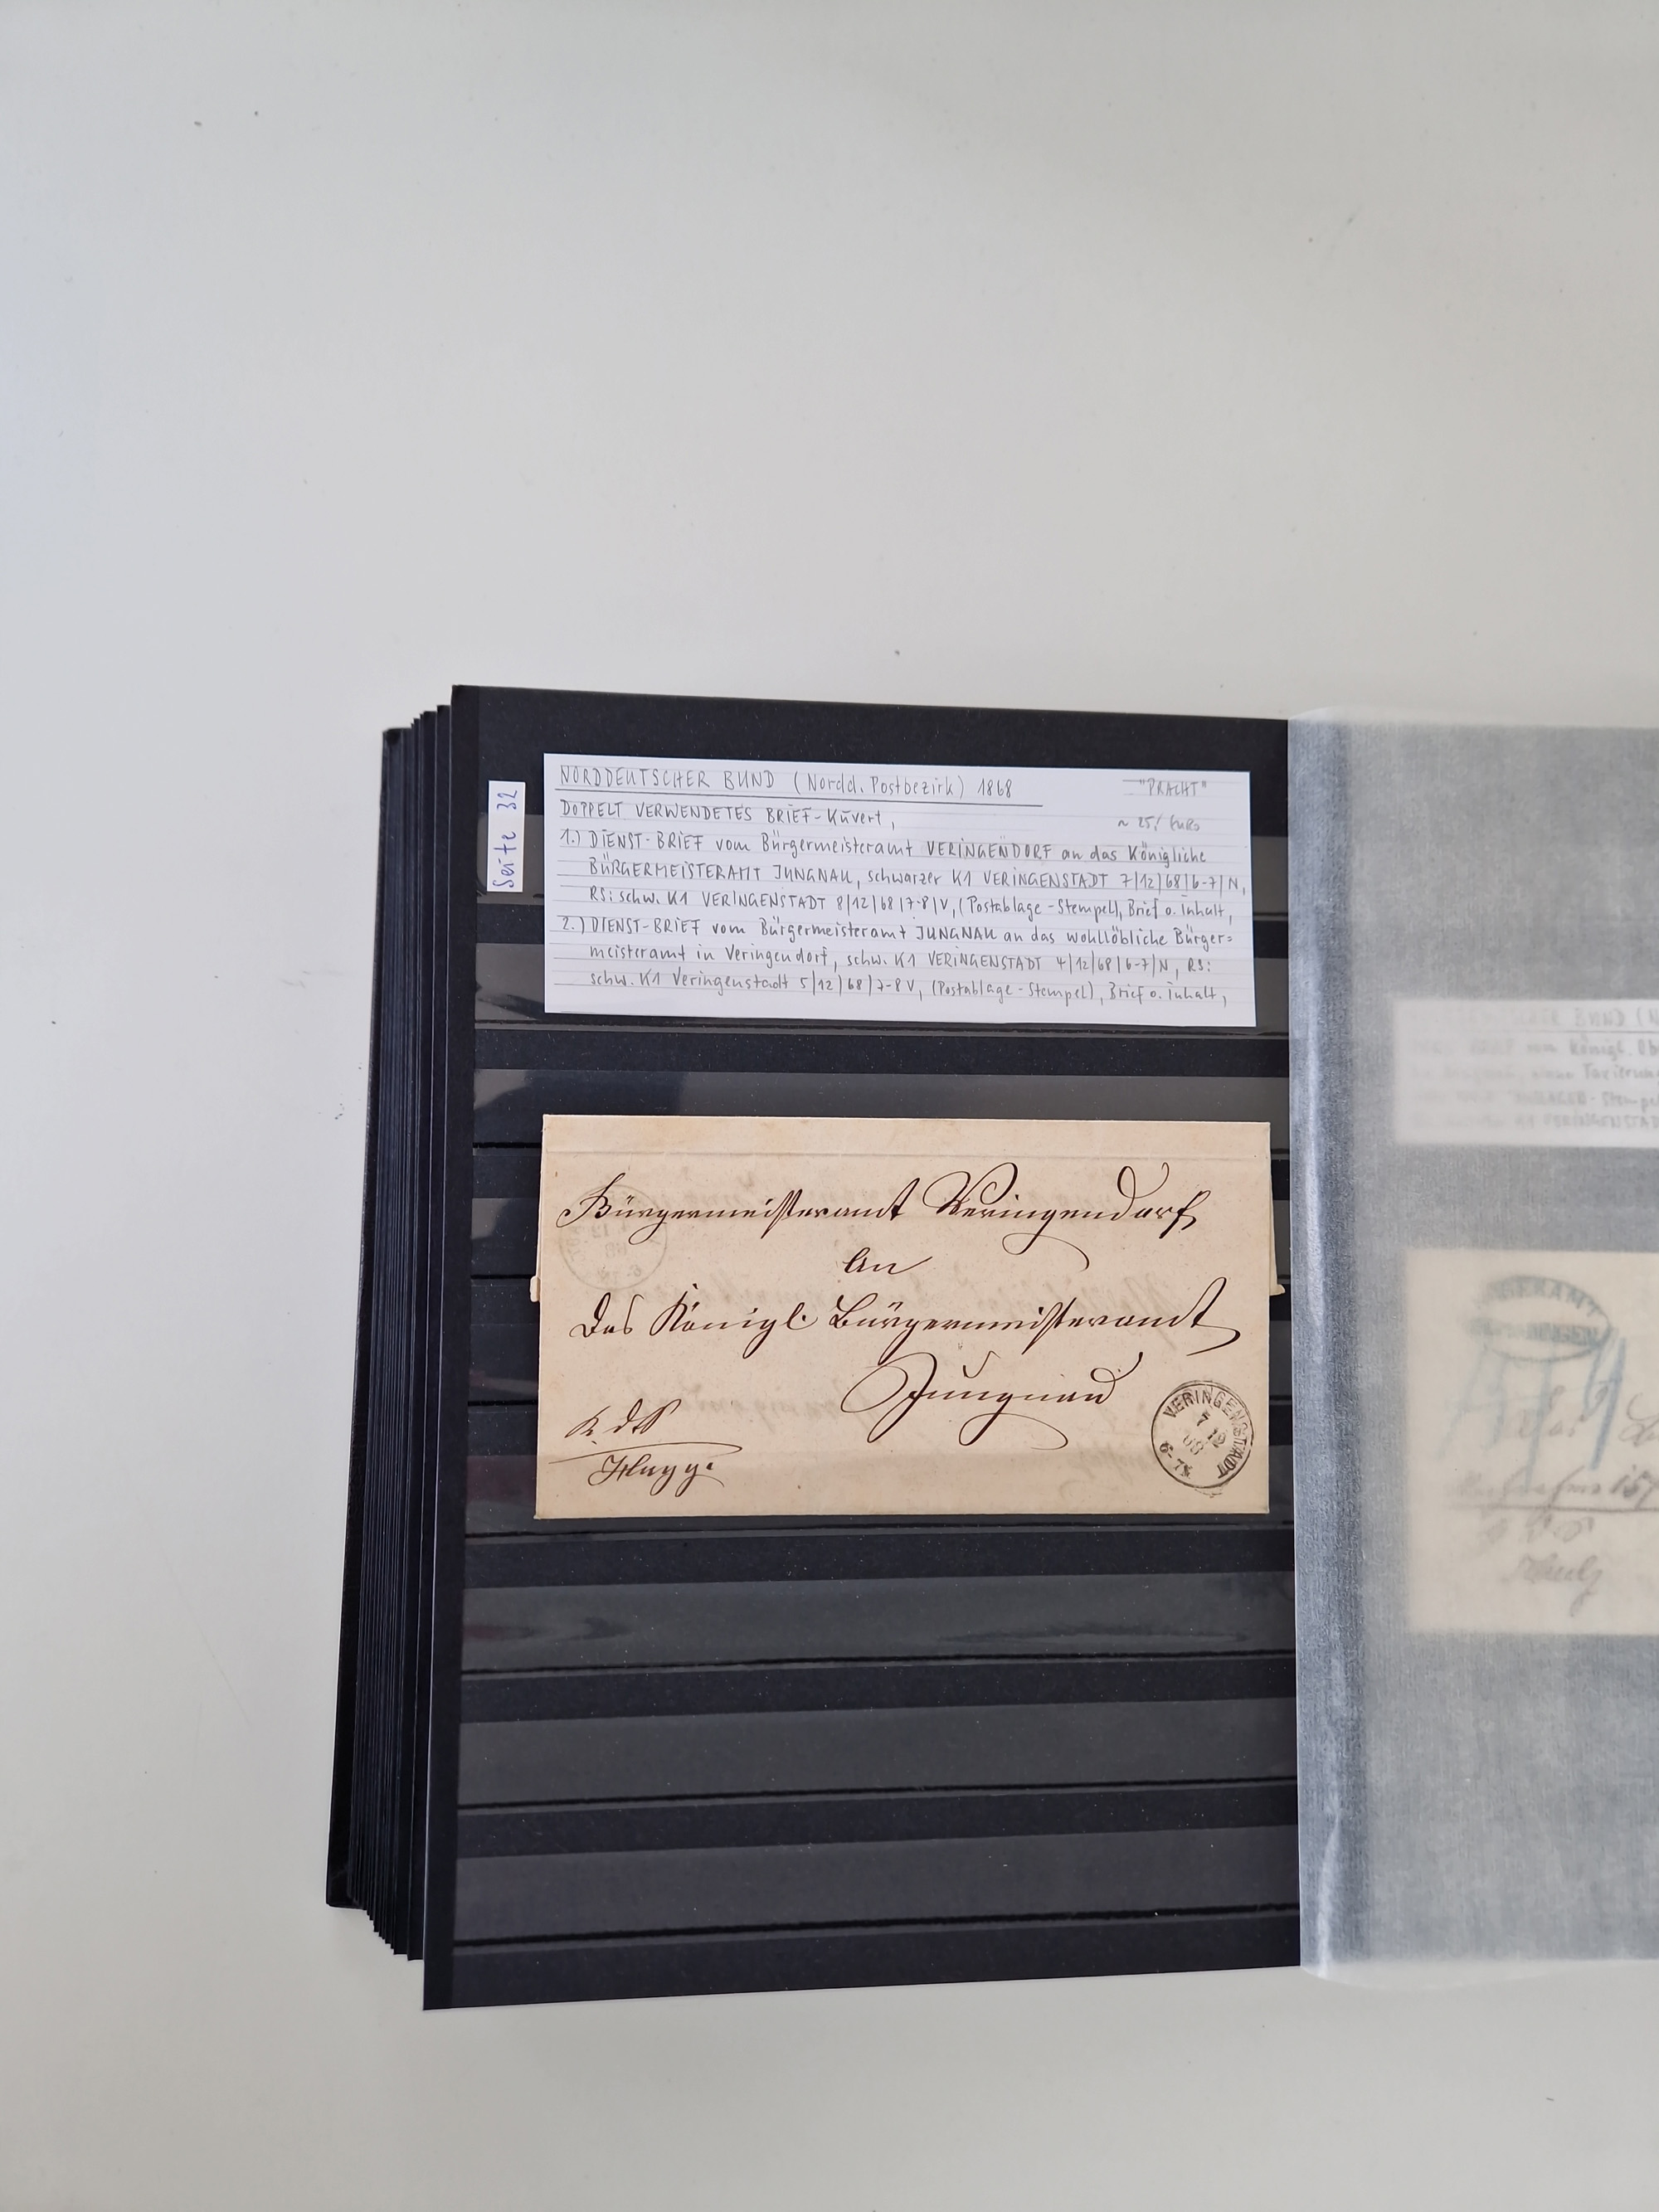 Seite 32
NORDDEUTSCHER BUND (Nordd. Postbezirk) 1868 "PRACHT"
DOPPELT VERWENDETES BRIEF-Kuvert, ~ 25,- Euro
1.) DIENST-BRIEF vom Bürgermeisteramt VERINGENDORF an das Königliche
BÜRGERMEISTERAMT JUNGNAU, schwarzer K1 VERINGENSTADT 7|12|68|6-7|N,
RS: schw. K1 VERINGENSTADT 8|12|68|7-8|V, (Postablage-Stempel), Brief o. Inhalt,
2.) DIENST-BRIEF vom Bürgermeisteramt JUNGNAU an das wohllöbliche Bürger=
meisteramt in Veringendorf, schw. K1 VERINGENSTADT 4|12|68|6-7|N, RS:
schw. K1 Veringenstadt 5|12|68|7-8 V, (Postablage-Stempel), Brief o. Inhalt,
Bürgermeisteramt Veringendorf
An
Das Königl. Bürgermeisteramt
Jungnau
VERINGENSTADT
7
12
68
6-7N
BUND (N
vom Königl. Ob
Taxierung
Stempel
VERINGENSTAD
BERAMT